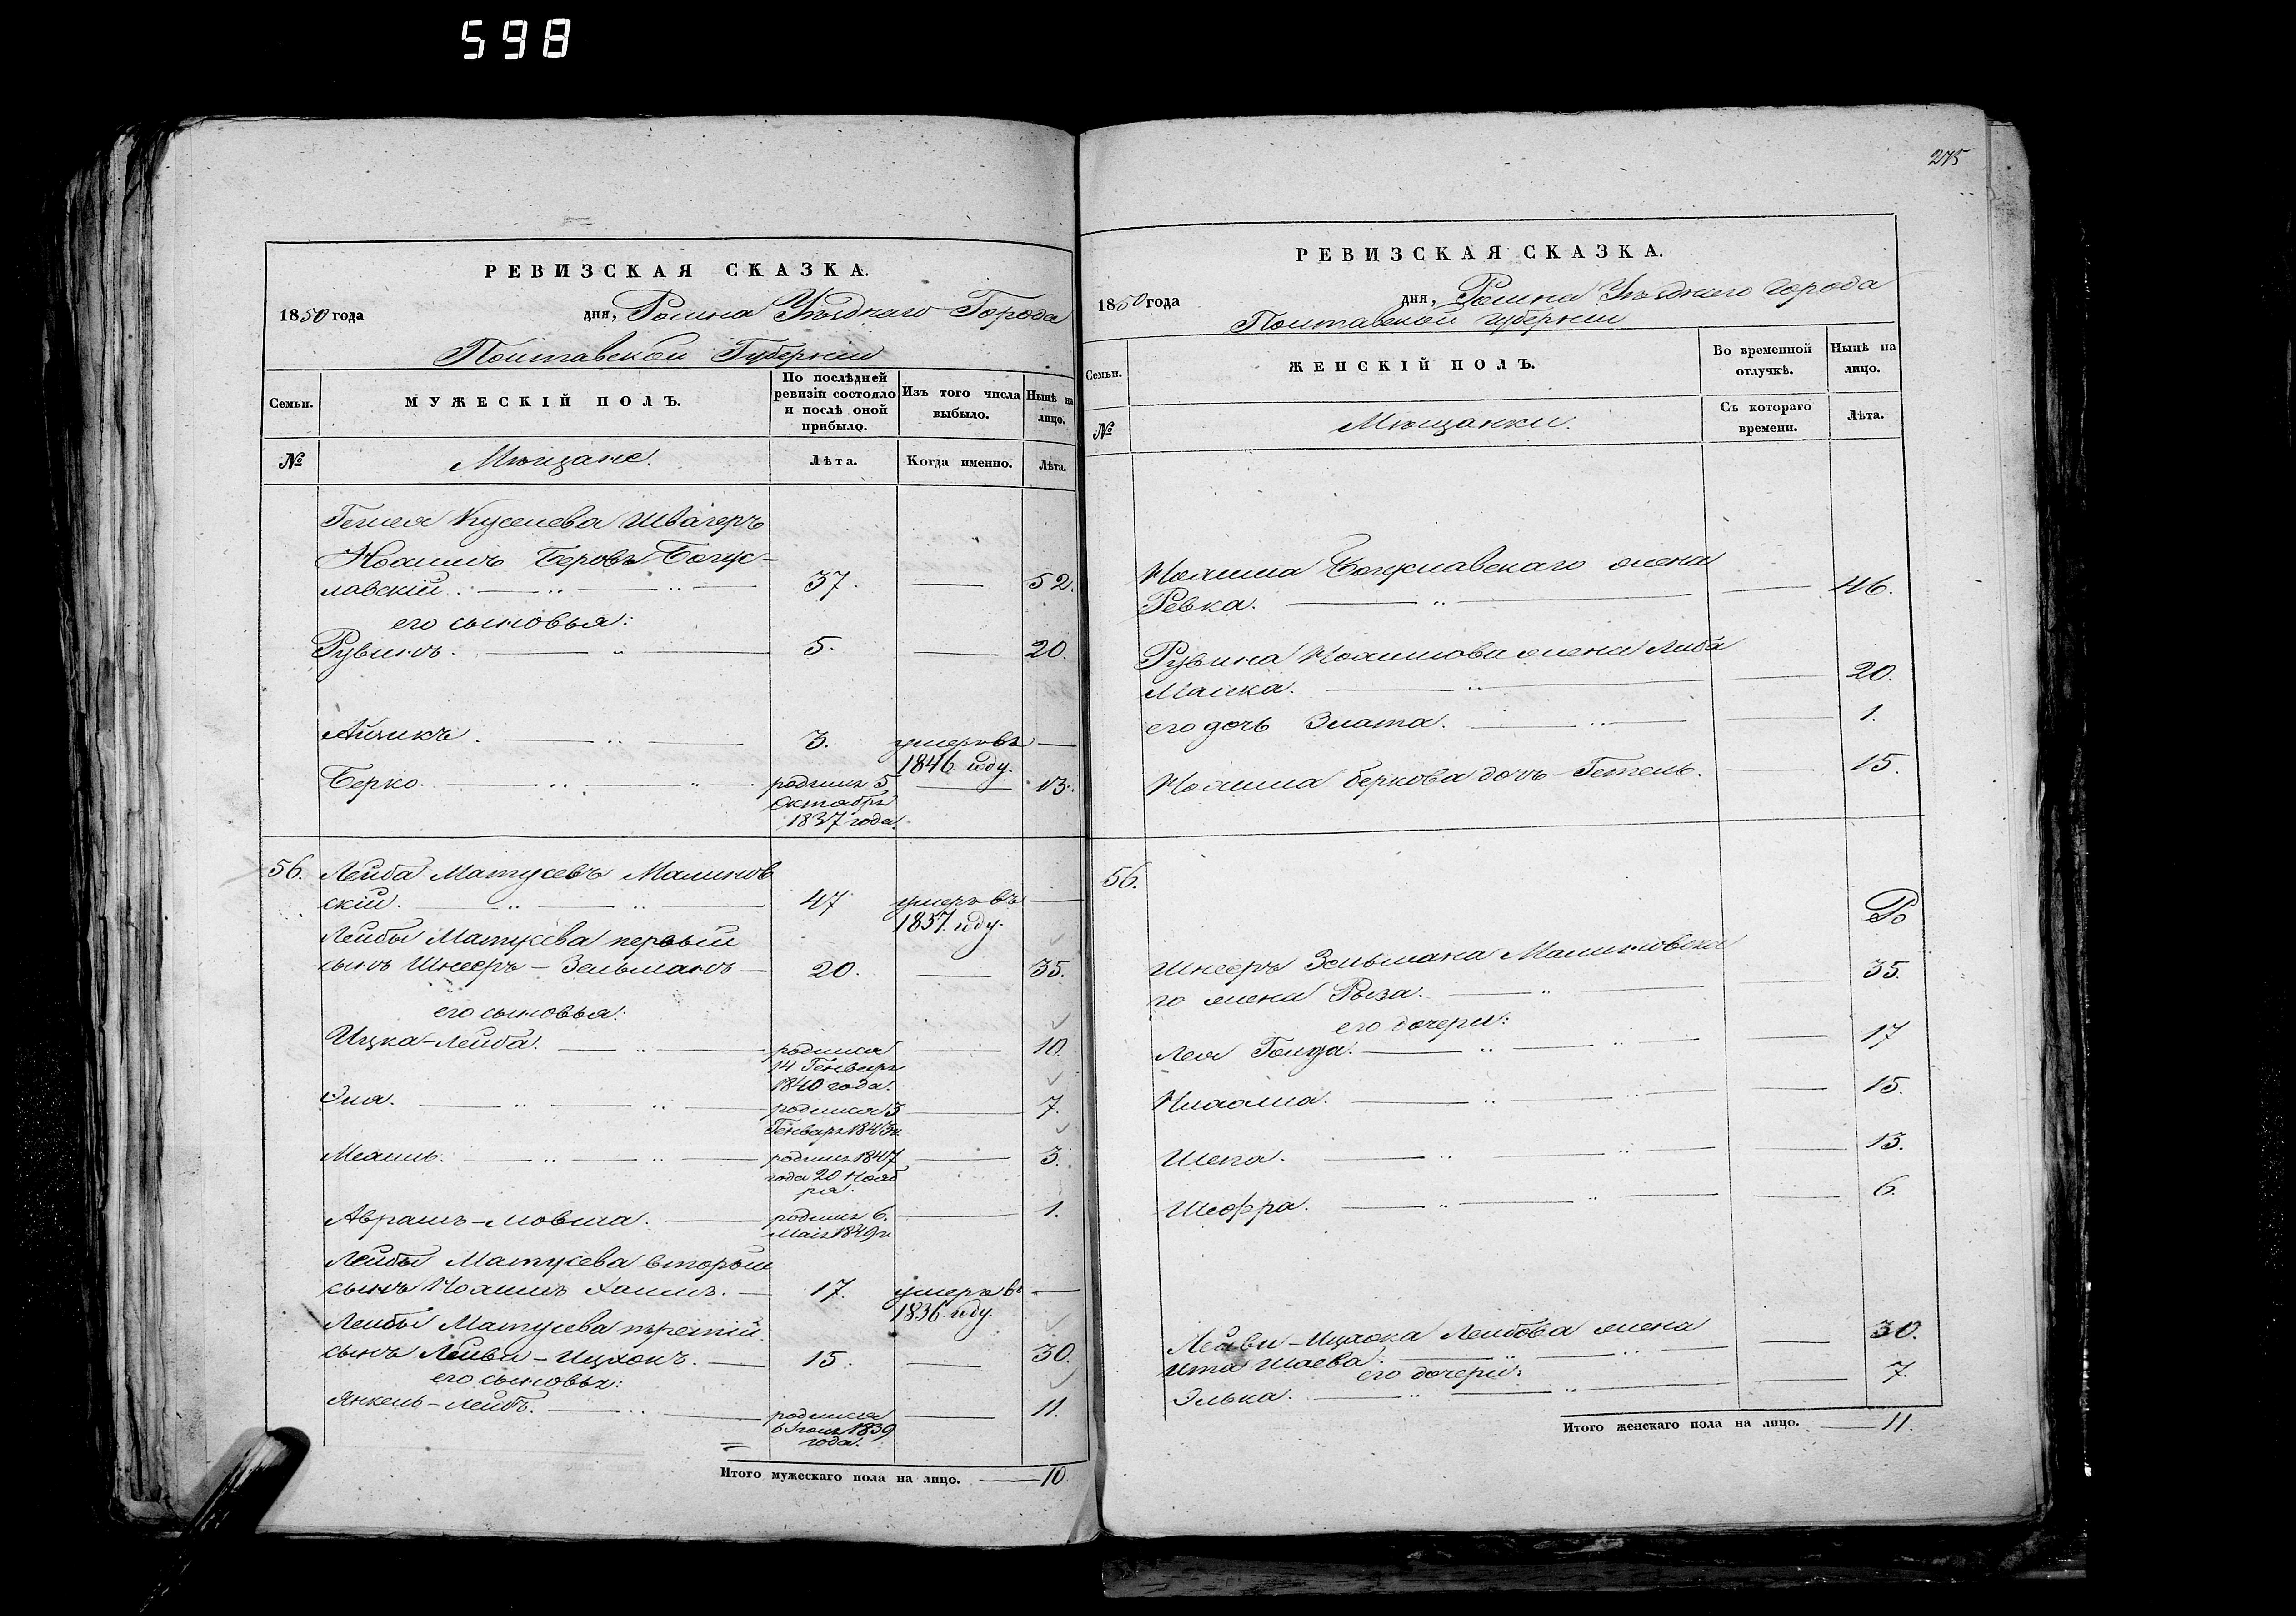 598
РЕВИЗСКАЯ СКАЗКА.
1850 года дня, Ромна Уѣзднаго Города
Полтавской Губерніи
Семьи.
МУЖЕСКІЙ ПОЛЪ.
По послѣдней ревизіи состояло и послѣ оной прибыло.
Изъ того числа выбыло.
Нынѣ на лицо.
№
Мѣщане.
Лѣта.
Когда именно.
Лѣта.
Куселева Швагеръ
Ноахимъ Беровъ Богус-
лавскій. 37. 52.
его сыновья:
Рувинъ. 5. 20.
Айзикъ. 3. умеръ въ
1846 году.
Берко. родился 5 13.
Октября
1837 года.
56. Лейба Матусевъ Малинов
скій. 47 умеръ въ
1837. году.
Лейбы Матусева первый
сынъ Шнееръ-Зельманъ 20. 35.
его сыновья:
Ицка-Лейба. родился 10.
14 Генваря
1840 года.
Элія. родился 3 7.
Генваря 1843 г.
родился 1847 3.
года 20 Нояб
ря.
Аврамъ-Мовша. родился 6. 1.
Маія 1849 г.
Лейбы Матусева вторый
сынъ Ноахимъ Хаимъ. 17. умеръ въ
1836. году.
Лейбы Матусева третій
сынъ Лейви-Ицхокъ. 15. 30.
его сыновья:
Янкель-Лейбъ. родился 11.
6 1839
года.
Итого мужескаго пола на лицо. 10.
275
РЕВИЗСКАЯ СКАЗКА.
1850 года дня, Ромна Уѣзднаго города
Полтавской губерніи
Семьи.
ЖЕНСКІЙ ПОЛЪ.
Во временной отлучкѣ.
Нынѣ на лицо.
№
Мѣщанки.
Съ котораго времени.
Лѣта.
Ноахима Богуславскаго жена
Ревка. 46.
Рувина Ноахимова жена Либа
Малка. 20.
его дочь Злата. 1.
Ноахима Беркова дочь 15.
56.
Шнееръ Зельмана Малиновска
го жена Рыза. 35.
его дочери:
Лея Голда. 17
15.
Шепа. 13.
Шефра. 6.
Лейви-Ицхока Лейбова жена
Ита Шаева. 30.
его дочери:
Элька. 7.
Итого женскаго пола на лицо. 11.